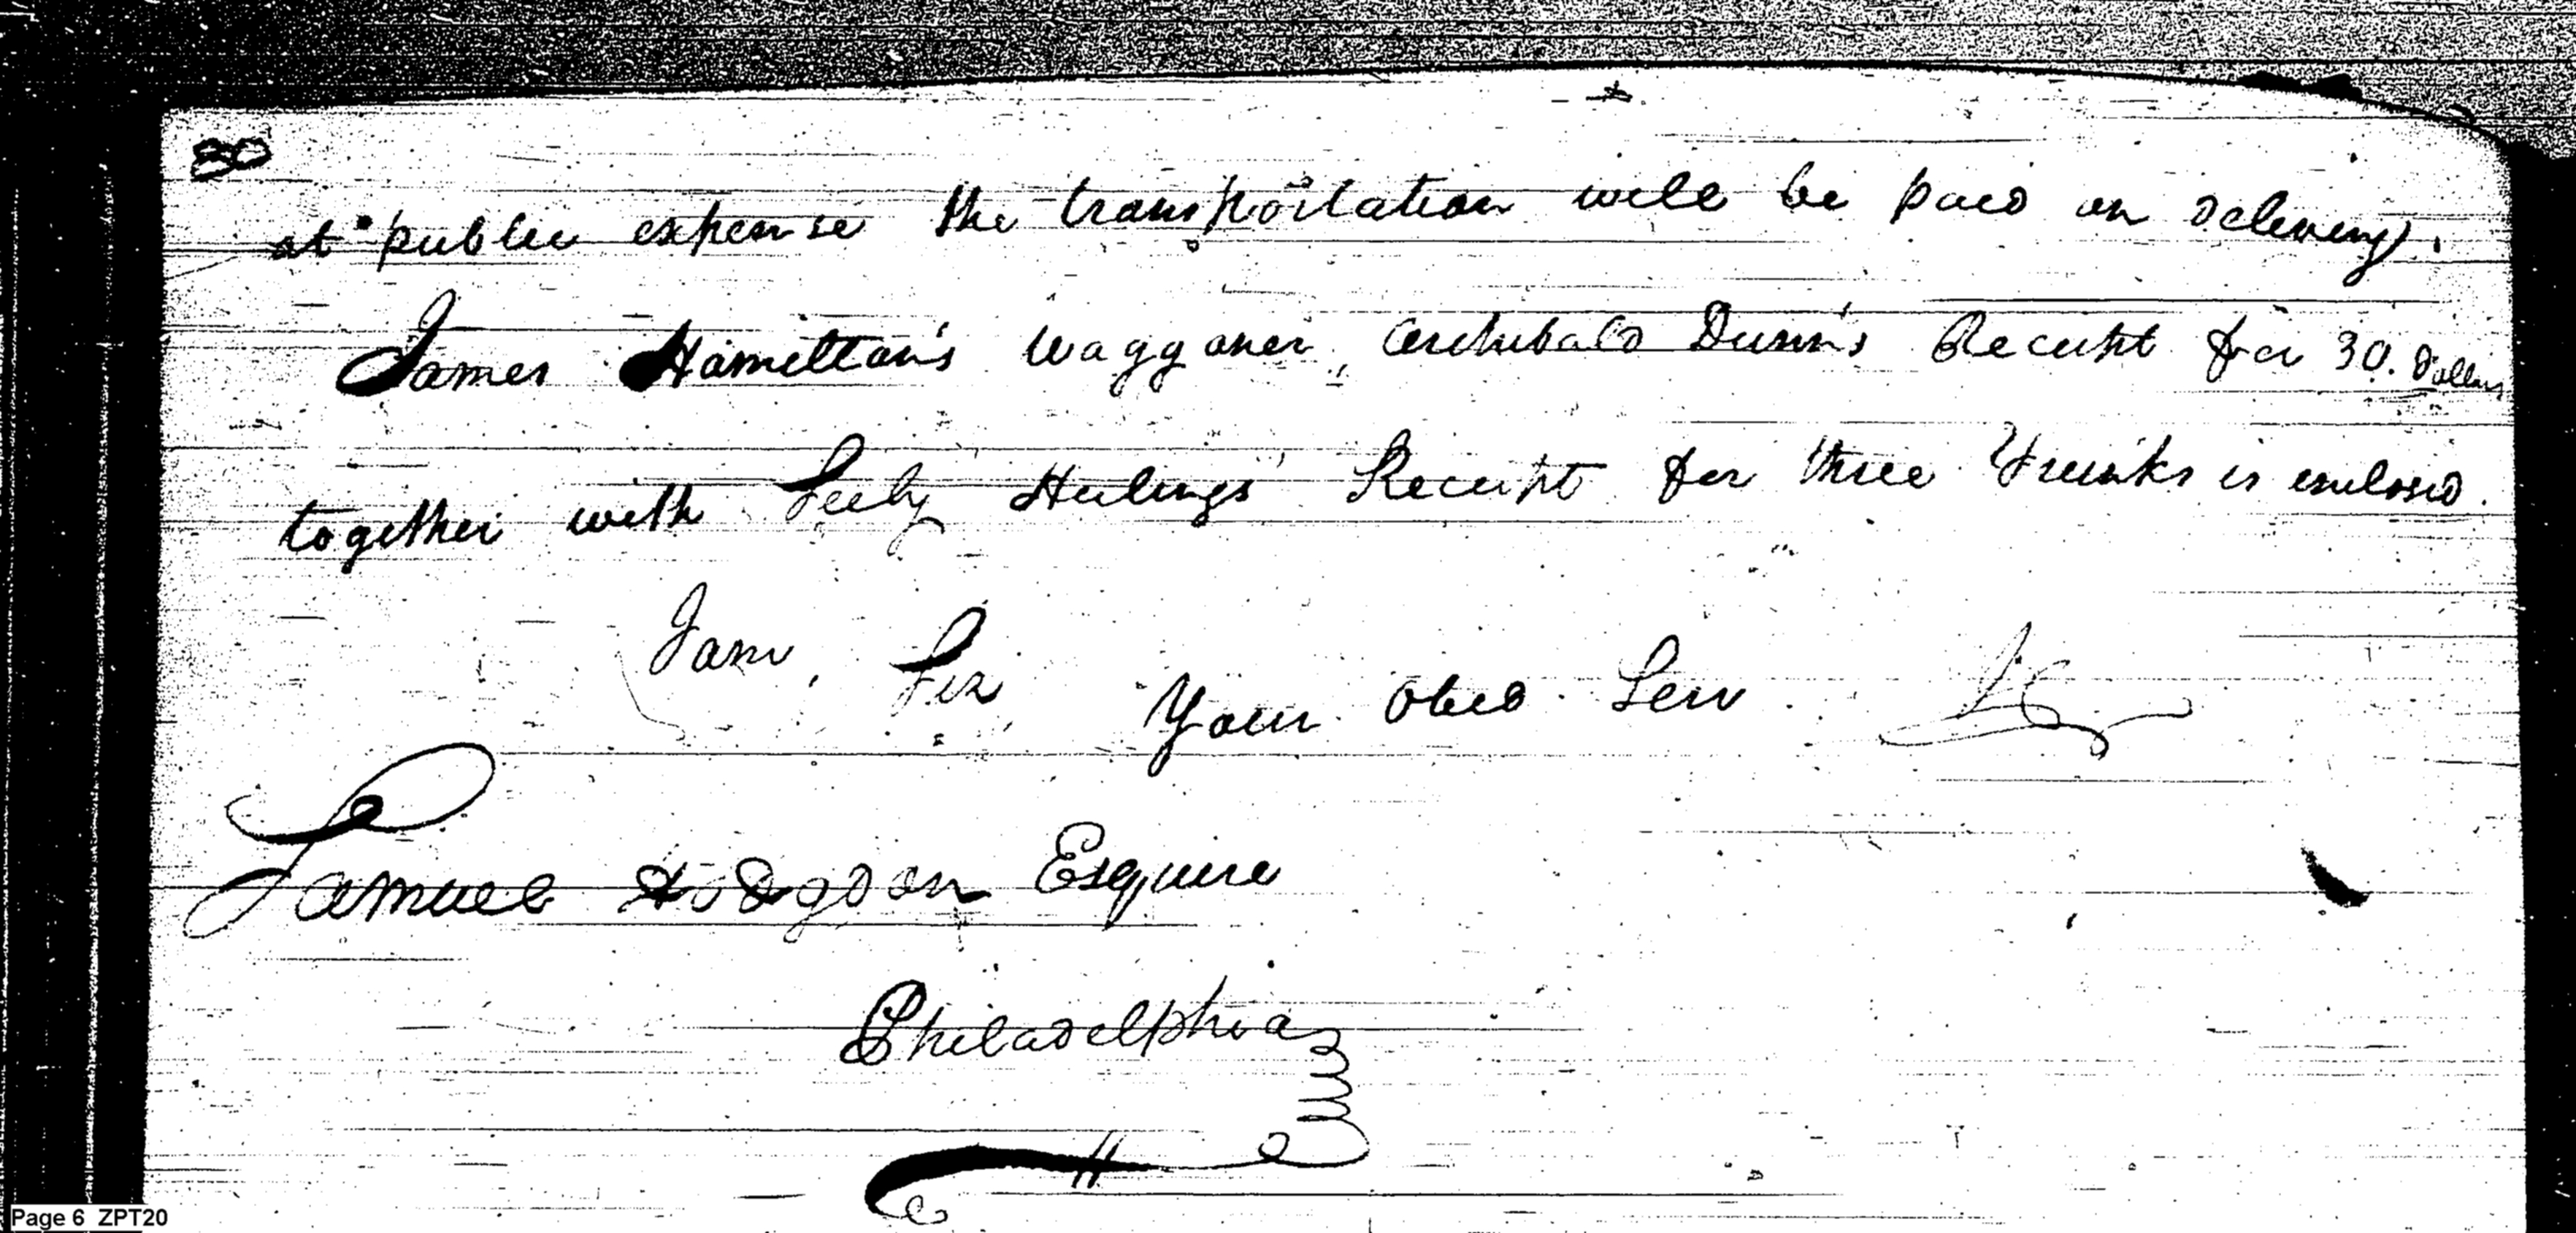 80
at public expense the transportation will be paid on delivery.
James Hamilton's Waggoner, Archibald Dunn's Receipt for 30. Dollars
together with Seely Hulings' Receipt for three Trunks is enclosed.
I am, Sir
Your Obed. Serv.
Samuel Hodgdon Esquire
Philadelphia
Page 6 ZPT20